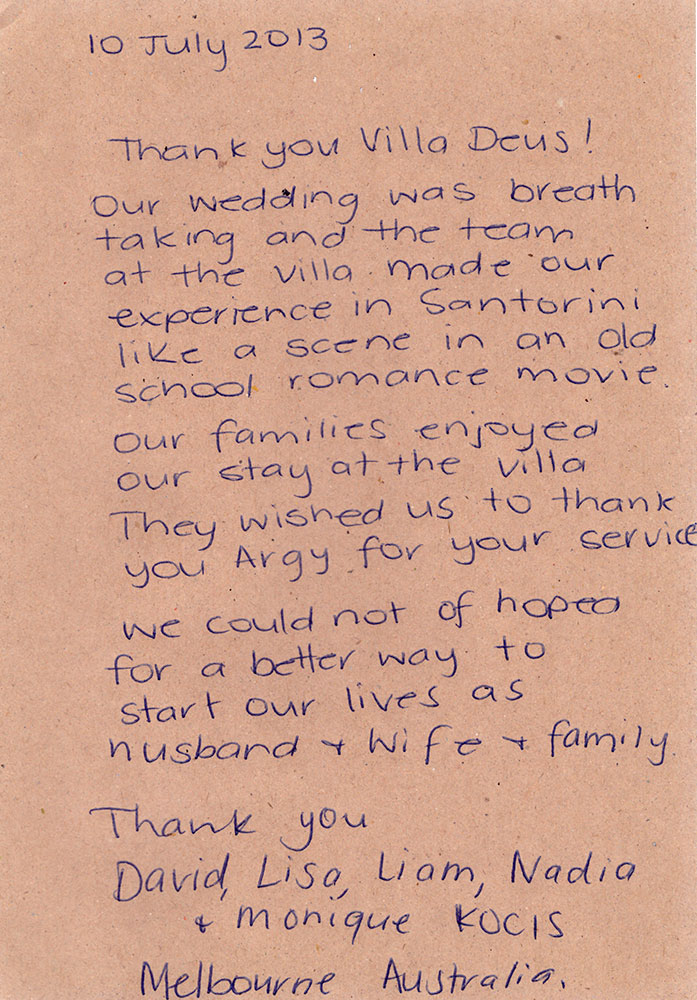 10 July 2013
Thank you Villa Deus!
Our wedding was breath
taking and the team
at the villa made our
experience in Santorini
like a scene in an old
school romance movie.
Our families enjoyed
our stay at the villa
They wished us to thank
you Argy for your service
We could not of hoped
for a better way to
start our lives as
husband + Wife + family.
Thank you
David, Lisa, Liam, Nadia
+ Monique KOCIS
Melbourne Australia.